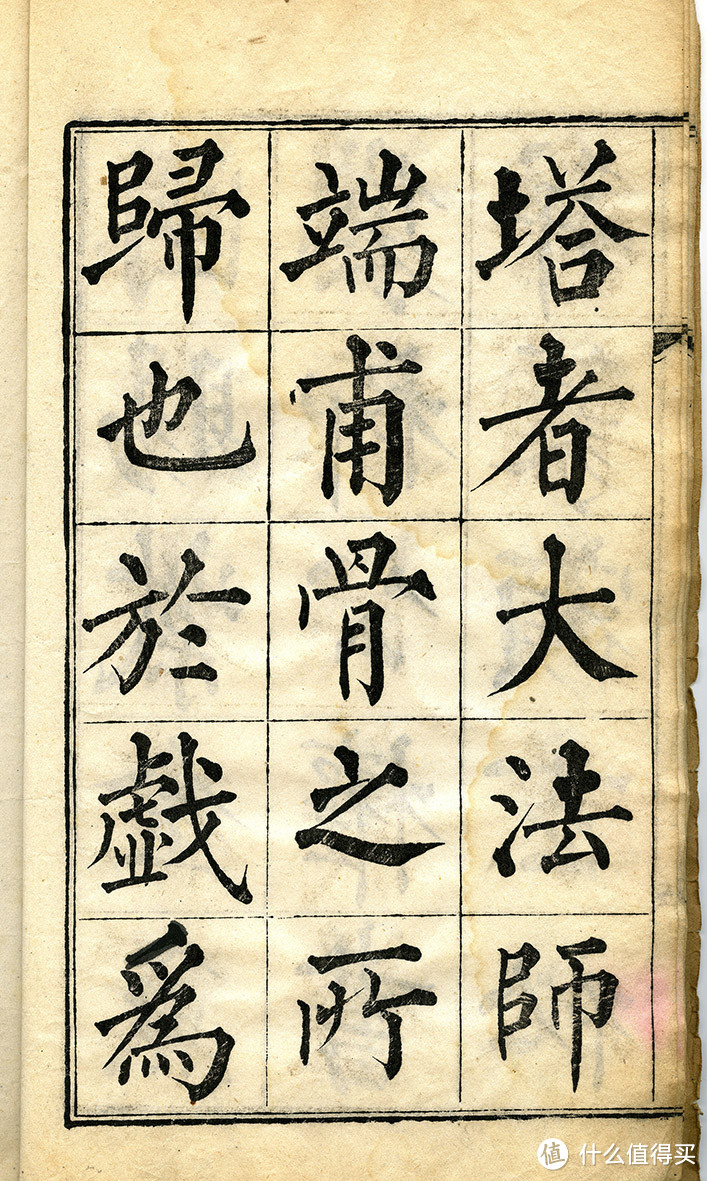 塔者大法師
端甫骨之所
歸也於戱爲
值 什么值得买